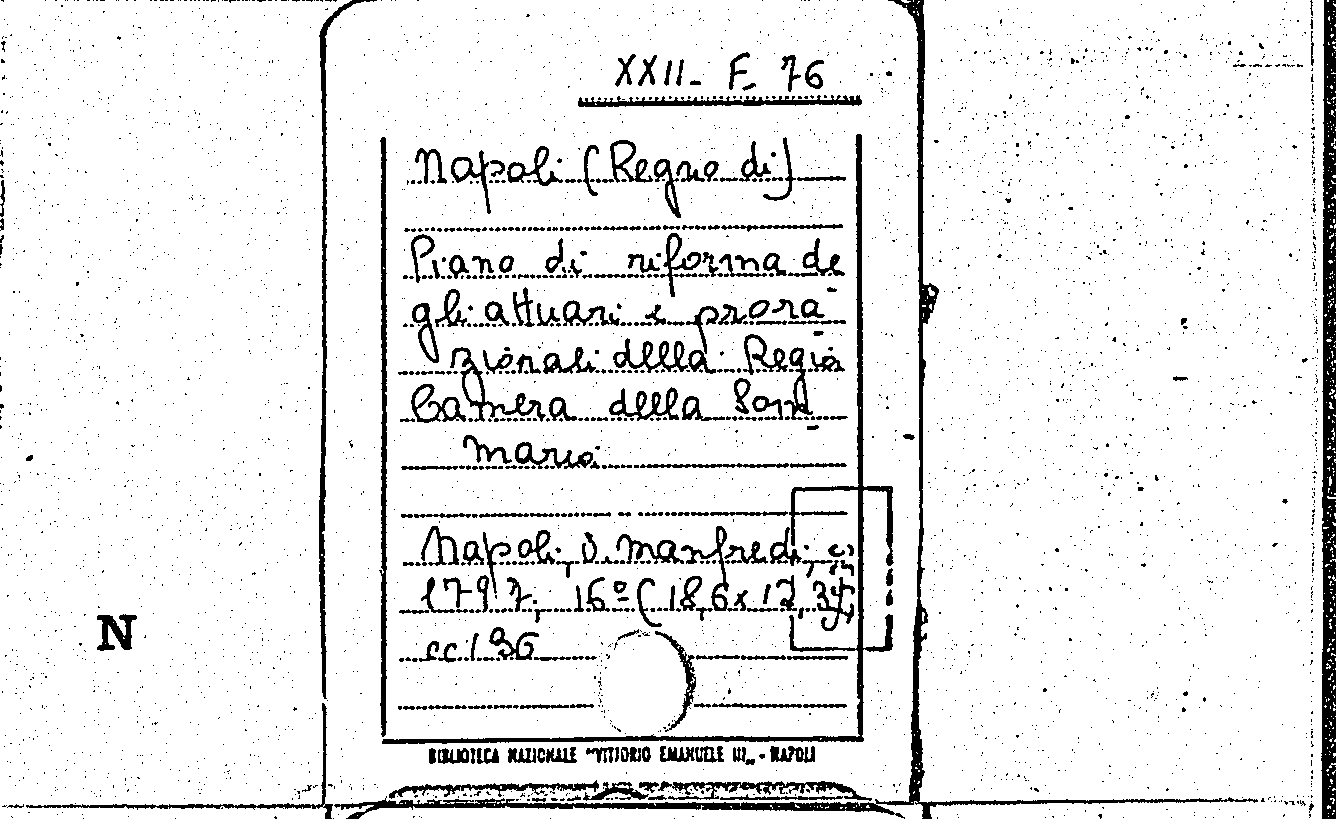 XXII- F- 76
Napoli (Regno di)
Piano di riforma de
gli attuari e prora-
zionali della Regia
Camera della Som-
maria
Napoli, D. Manfredi,
1797, 16º (18,6x12,
cc 136
N
BIBLIOTECA NAZIONALE "VITTORIO EMANUELE III„ - NAPOLI